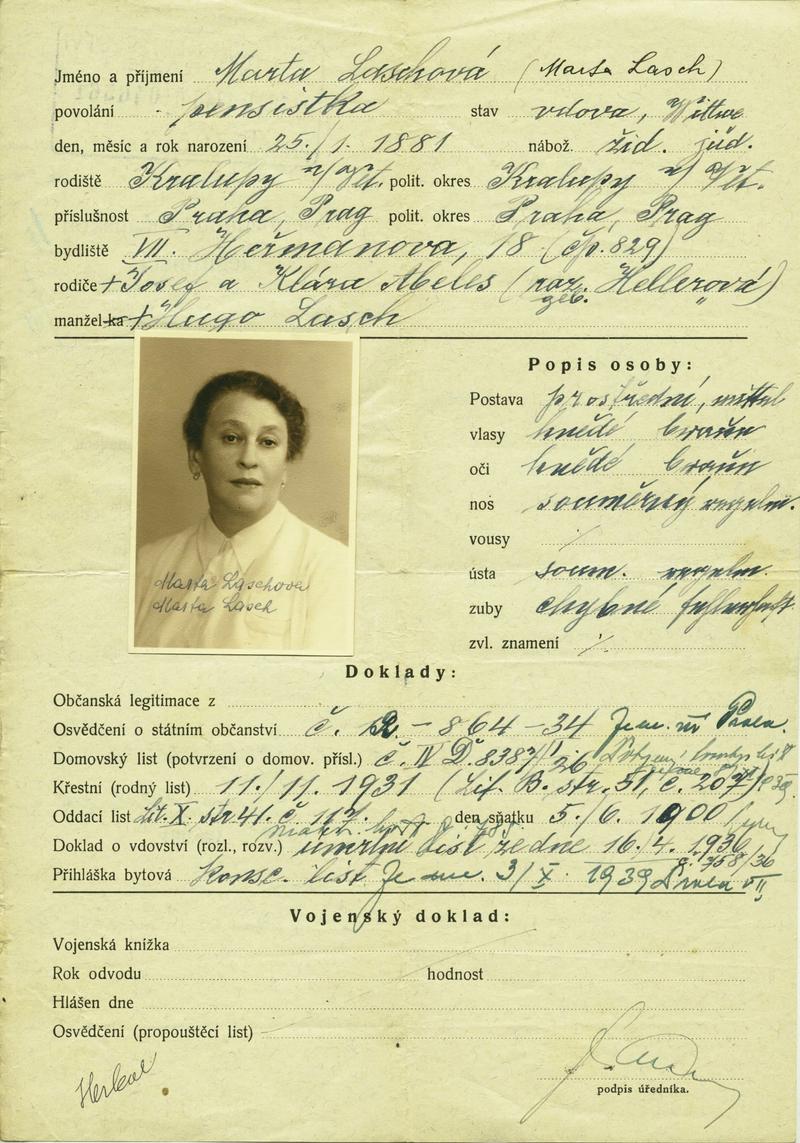 Jméno a příjmení Marta Laschová (Marta Lasch)
povolání pensistka stav vdova, Witwe
den, měsíc a rok narození 25./1. 1881 nábož. žid. jüd.
rodiště Kralupy n/Vlt. polit. okres Kralupy n/Vlt.
příslušnost Praha, Prag polit. okres Praha, Prag
bydliště VII. Heřmanova, 18 (čp. 829)
rodiče + Josef a Klára Abeles (roz. geb. Hellerová)
manžel-ka + Hugo Lasch
Popis osoby:
Postava prostřední, mittel
vlasy hnědé braun
oči hnědé braun
nos souměrný regelm.
vousy /
ústa soum. regelm.
zuby chybné fehlerhaft
zvl. znamení /
Marta Laschova
Marta Lasch
Doklady:
Občanská legitimace z
Osvědčení o státním občanství č. - 864 - 34
Domovský list (potvrzení o domov. přísl.) č. IV D. 8387/ 26
Křestní (rodný list) 11./11. 1931 (Lit. B. str. 51, č. 207)
Oddací list Lit. X. str 41. č. 117. den sňatku 5./6. 1900
Doklad o vdovství (rozl., rozv.) úmrtní list ze dne 16./4. 1936
č. 758/36
Přihláška bytová konsc. list ze dne 3/X. 1939 Praha VII
Vojenský doklad:
Vojenská knížka
Rok odvodu hodnost
Hlášen dne
Osvědčení (propouštěcí list)
podpis úředníka.